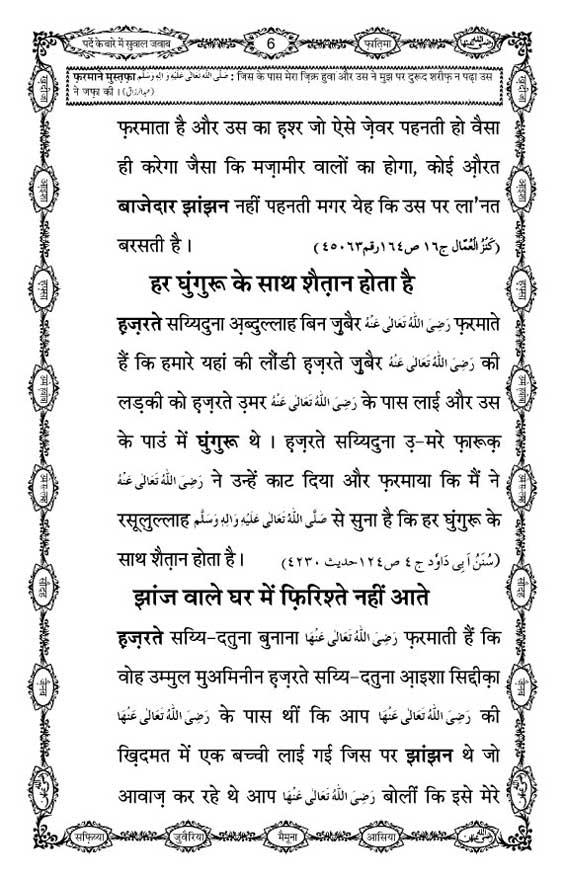 पर्दे के बारे में सुवाल जवाब
6
फ़ातिमा
फ़रमाने मुस्तफ़ा صَلَّى اللهُ تَعَالٰى عَلَيْهِ وَاٰلِهٖ وَسَلَّم : जिस के पास मेरा ज़िक्र हुवा और उस ने मुझ पर दुरूद शरीफ़ न पढ़ा उस
ने जफ़ा की । (عبدالرزاق)
फ़रमाता है और उस का ह़श्र जो ऐसे ज़ेवर पहनती हो वैसा
ही करेगा जैसा कि मज़ामीर वालों का होगा, कोई औ़रत
बाजेदार झांझन नहीं पहनती मगर येह कि उस पर ला'नत
बरसती है । (كَنْزُ الْعُمّال ج١٦ ص١٦٤ رقم ٤٥٠٦٣)
हर घुंगुरू के साथ शैत़ान होता है
ह़ज़रते सय्यिदुना अ़ब्दुल्लाह बिन ज़ुबैर رَضِىَ اللهُ تَعَالٰى عَنْهُ फ़रमाते
हैं कि हमारे यहां की लौंडी ह़ज़रते ज़ुबैर رَضِىَ اللهُ تَعَالٰى عَنْهُ की
लड़की को ह़ज़रते उ़मर رَضِىَ اللهُ تَعَالٰى عَنْهُ के पास लाई और उस
के पाउं में घुंगुरू थे । ह़ज़रते सय्यिदुना उ़-मरे फ़ारूक़
رَضِىَ اللهُ تَعَالٰى عَنْهُ ने उन्हें काट दिया और फ़रमाया कि मैं ने
रसूलुल्लाह صَلَّى اللهُ تَعَالٰى عَلَيْهِ وَاٰلِهٖ وَسَلَّم से सुना है कि हर घुंगुरू के
साथ शैत़ान होता है । (سُنَنُ اَبِى دَاوٗد ج ٤ ص١٢٤ حديث ٤٢٣٠)
झांज वाले घर में फ़िरिश्ते नहीं आते
ह़ज़रते सय्यि-दतुना बुनाना رَضِىَ اللهُ تَعَالٰى عَنْهَا फ़रमाती हैं कि
वोह उम्मुल मुअमिनीन ह़ज़रते सय्यि-दतुना आ़इशा सिद्दीक़ा
رَضِىَ اللهُ تَعَالٰى عَنْهَا के पास थीं कि आप رَضِىَ اللهُ تَعَالٰى عَنْهَا की
ख़िदमत में एक बच्ची लाई गई जिस पर झांझन थे जो
आवाज़ कर रहे थे आप رَضِىَ اللهُ تَعَالٰى عَنْهَا बोलीं कि इसे मेरे
सफ़िय्या
जुवैरिया
मैमूना
आसिया